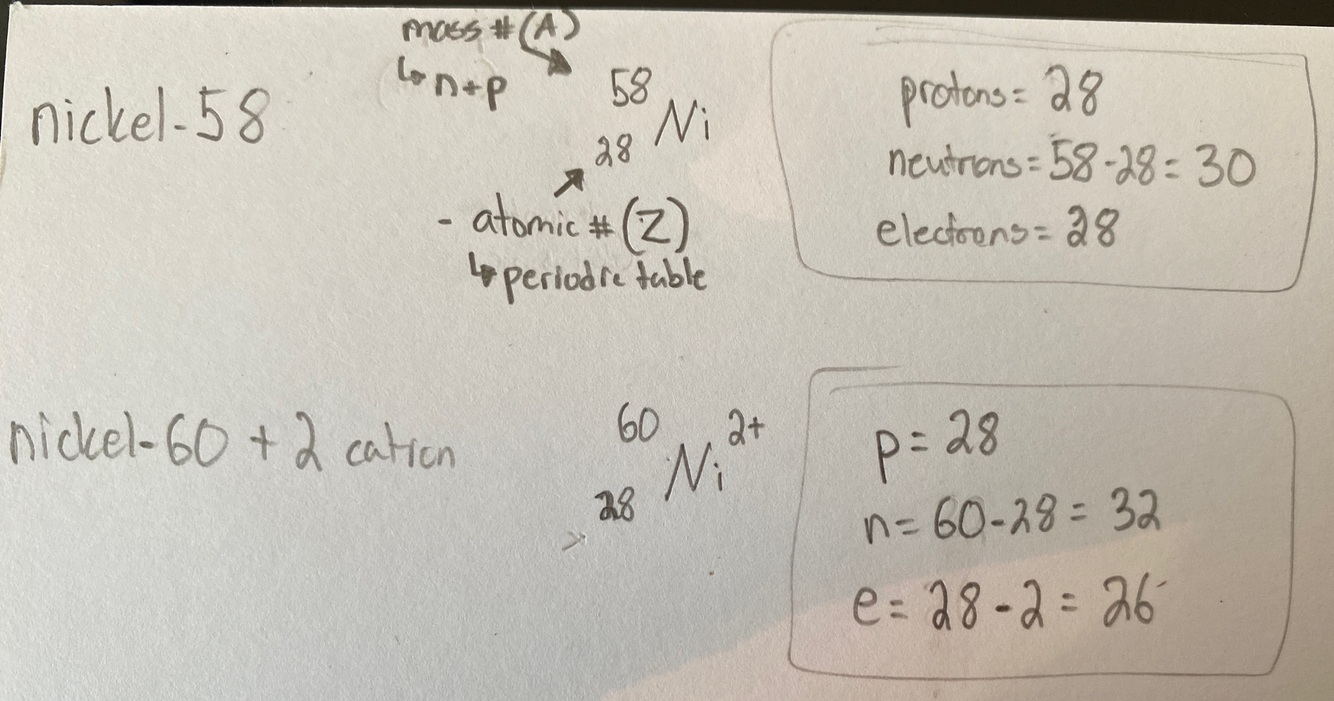 mass # (A)
↳ n+p
nickel-58
58
28 Ni
- atomic # (Z)
↳ periodic table
protons = 28
neutrons = 58-28 = 30
electrons = 28
nickel-60 +2 cation
60 2+
28 Ni
p = 28
n = 60-28 = 32
e = 28-2 = 26